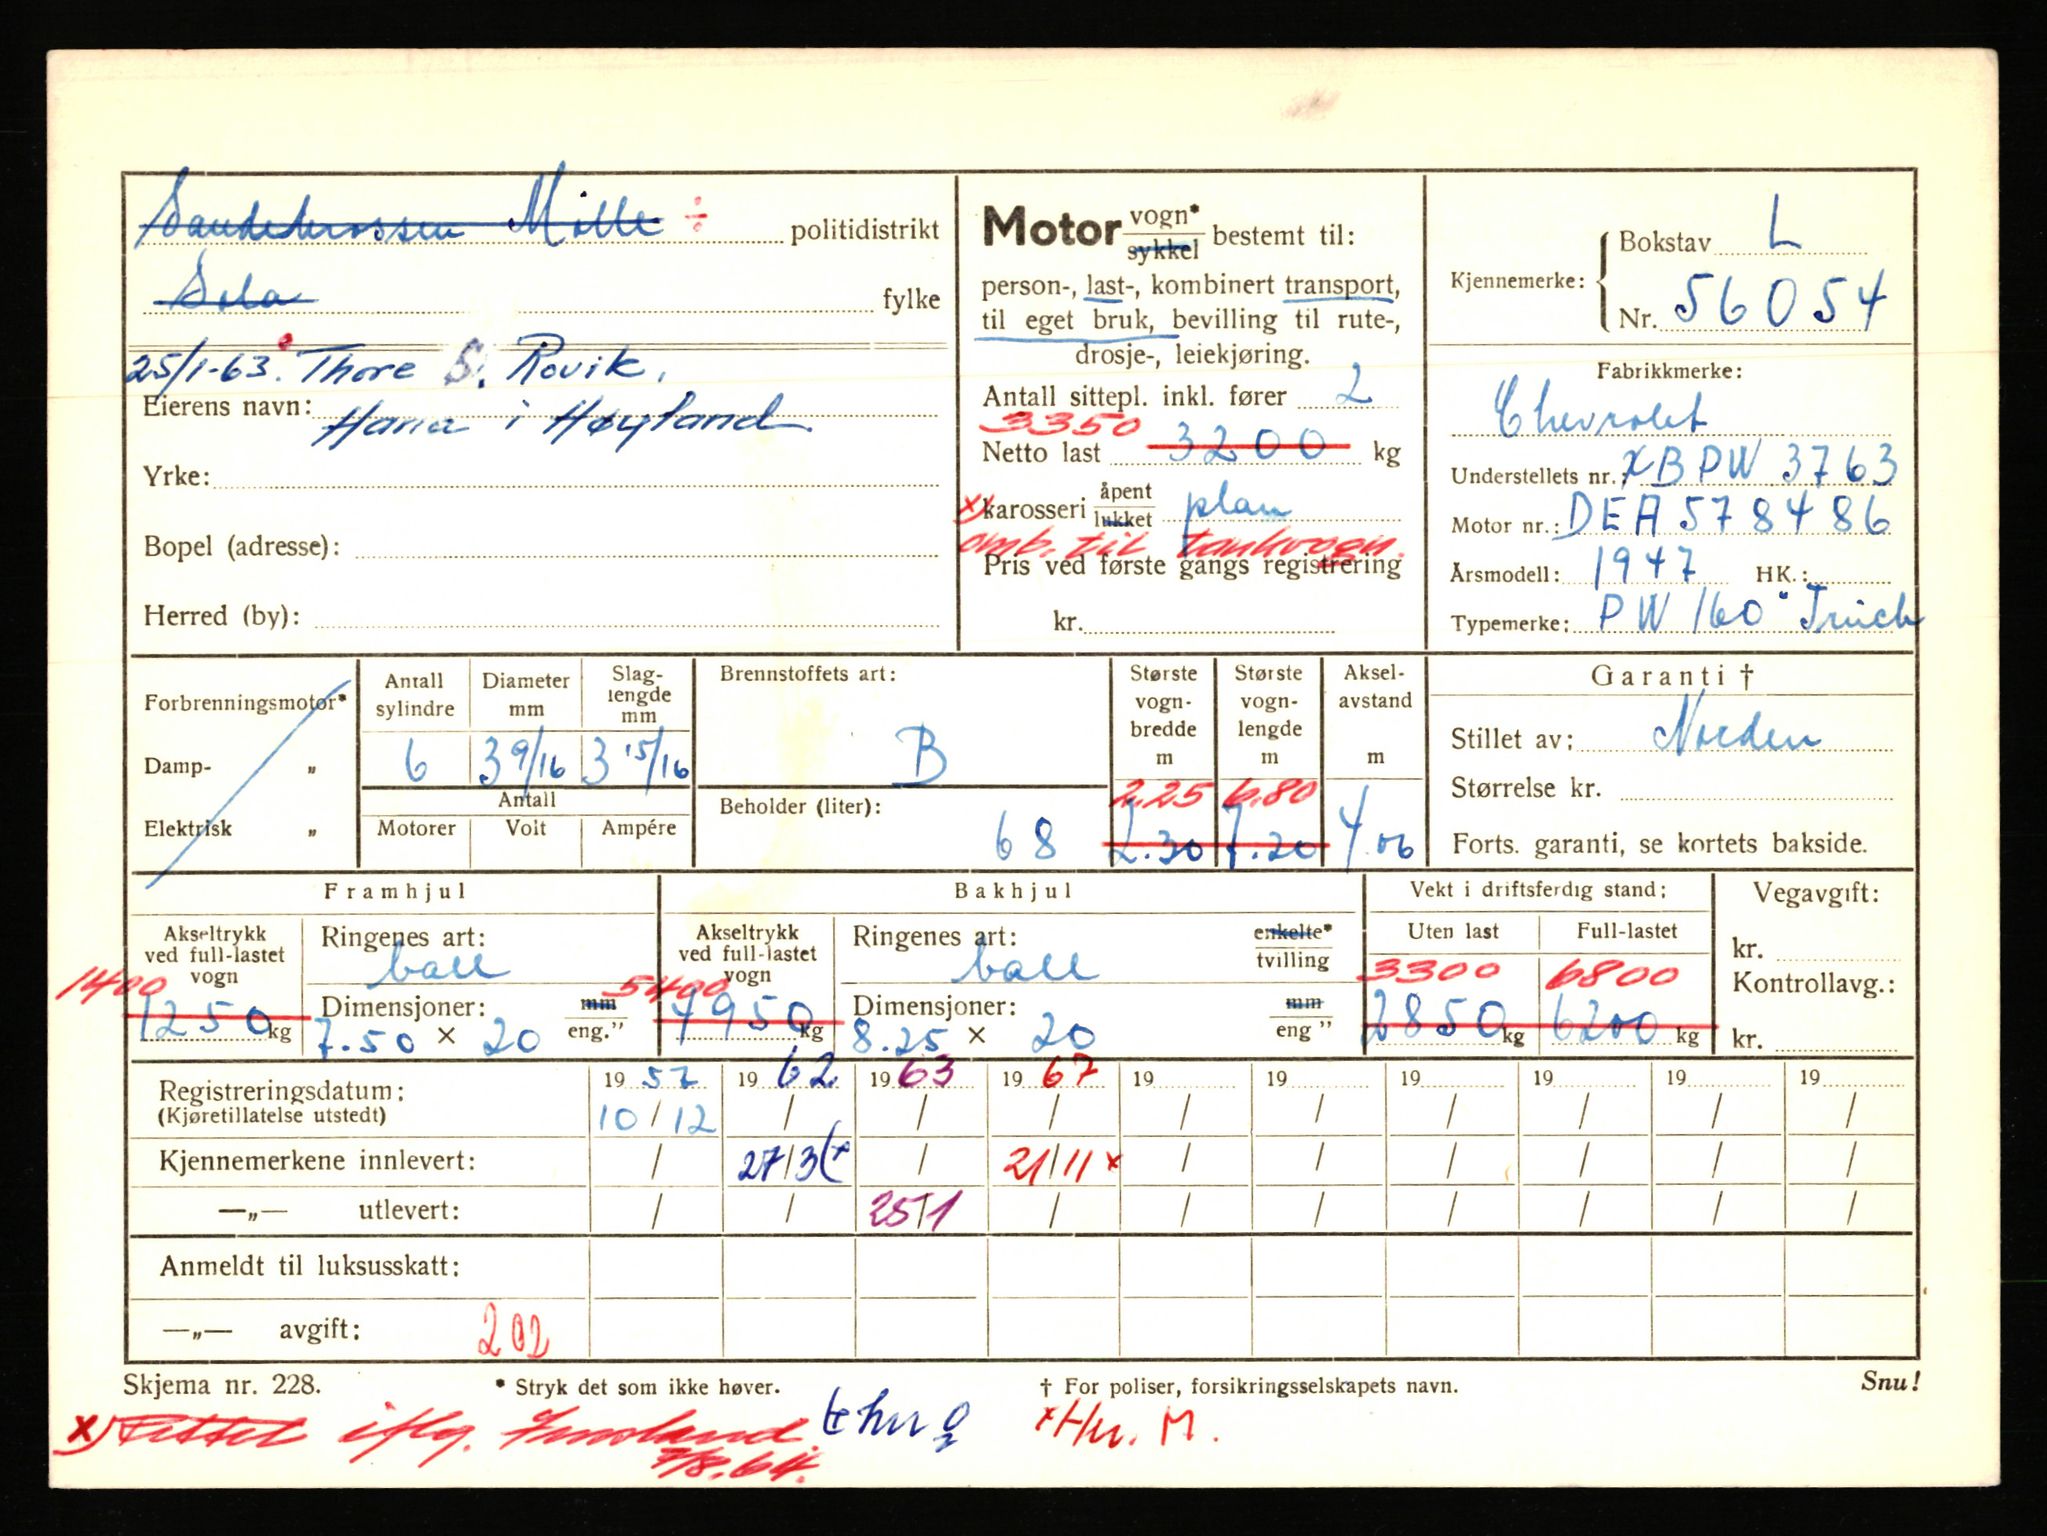 Mølle ÷ politidistrikt
Sola fylke
25/1-63. Thore S. Rovik.
Eierens navn: Hana i Høyland
Yrke:
Bopel (adresse):
Herred (by):
Motor vogn* sykkel bestemt til:
person-, last-, kombinert transport,
til eget bruk, bevilling til rute-,
drosje-, leiekjøring.
Antall sittepl. inkl. fører 2
3350
Netto last 3200 kg
x) karosseri åpent lukket plan
omb. til tankvogn.
Pris ved første gangs registrering
kr.
Kjennemerke:
Bokstav L
Nr. 56054
Fabrikkmerke:
Chevrolet
Understellets nr.: XBPW 3763
Motor nr.: DEA 578486
Årsmodell: 1947 HK.:
Typemerke: PW 160 "Truck
Forbrenningsmotor*
Damp- „
Elektrisk „
Antall sylindre
6
Diameter mm
3 9/16
Slaglengde mm
3 15/16
Antall
Motorer Volt Ampére
Brennstoffets art:
B
Beholder (liter):
68
Største vogn-bredde m
2.25
2.30
Største vogn-lengde m
6.80
7.20
Aksel-avstand m
4.06
Garanti †
Stillet av: Norden
Størrelse kr.
Forts. garanti, se kortets bakside.
Framhjul
Akseltrykk ved full-lastet vogn
1400
1250 kg
Ringenes art:
ball
Dimensjoner: mm
7.50 × 20 eng."
Bakhjul
Akseltrykk ved full-lastet vogn
5400
4950 kg
Ringenes art: enkelte*
ball tvilling
Dimensjoner: mm
8.25 × 20 eng "
Vekt i driftsferdig stand:
Uten last Full-lastet
3300 6800
2850 kg 6200 kg
Vegavgift:
kr.
Kontrollavg.:
kr.
Registreringsdatum: 19 57 19 62 19 63 19 67 19 19 19 19 19 19
(Kjøretillatelse utstedt) 10/12 / / / / / / / / /
Kjennemerkene innlevert: / 27/3 (+ / 21/11 x / / / / / /
—„— utlevert: / / 25/1 / / / / / / /
Anmeldt til luksusskatt:
—„— avgift: 202
Skjema nr. 228. * Stryk det som ikke høver. † For poliser, forsikringsselskapets navn. Snu!
x) iflg.
x Hu. M.